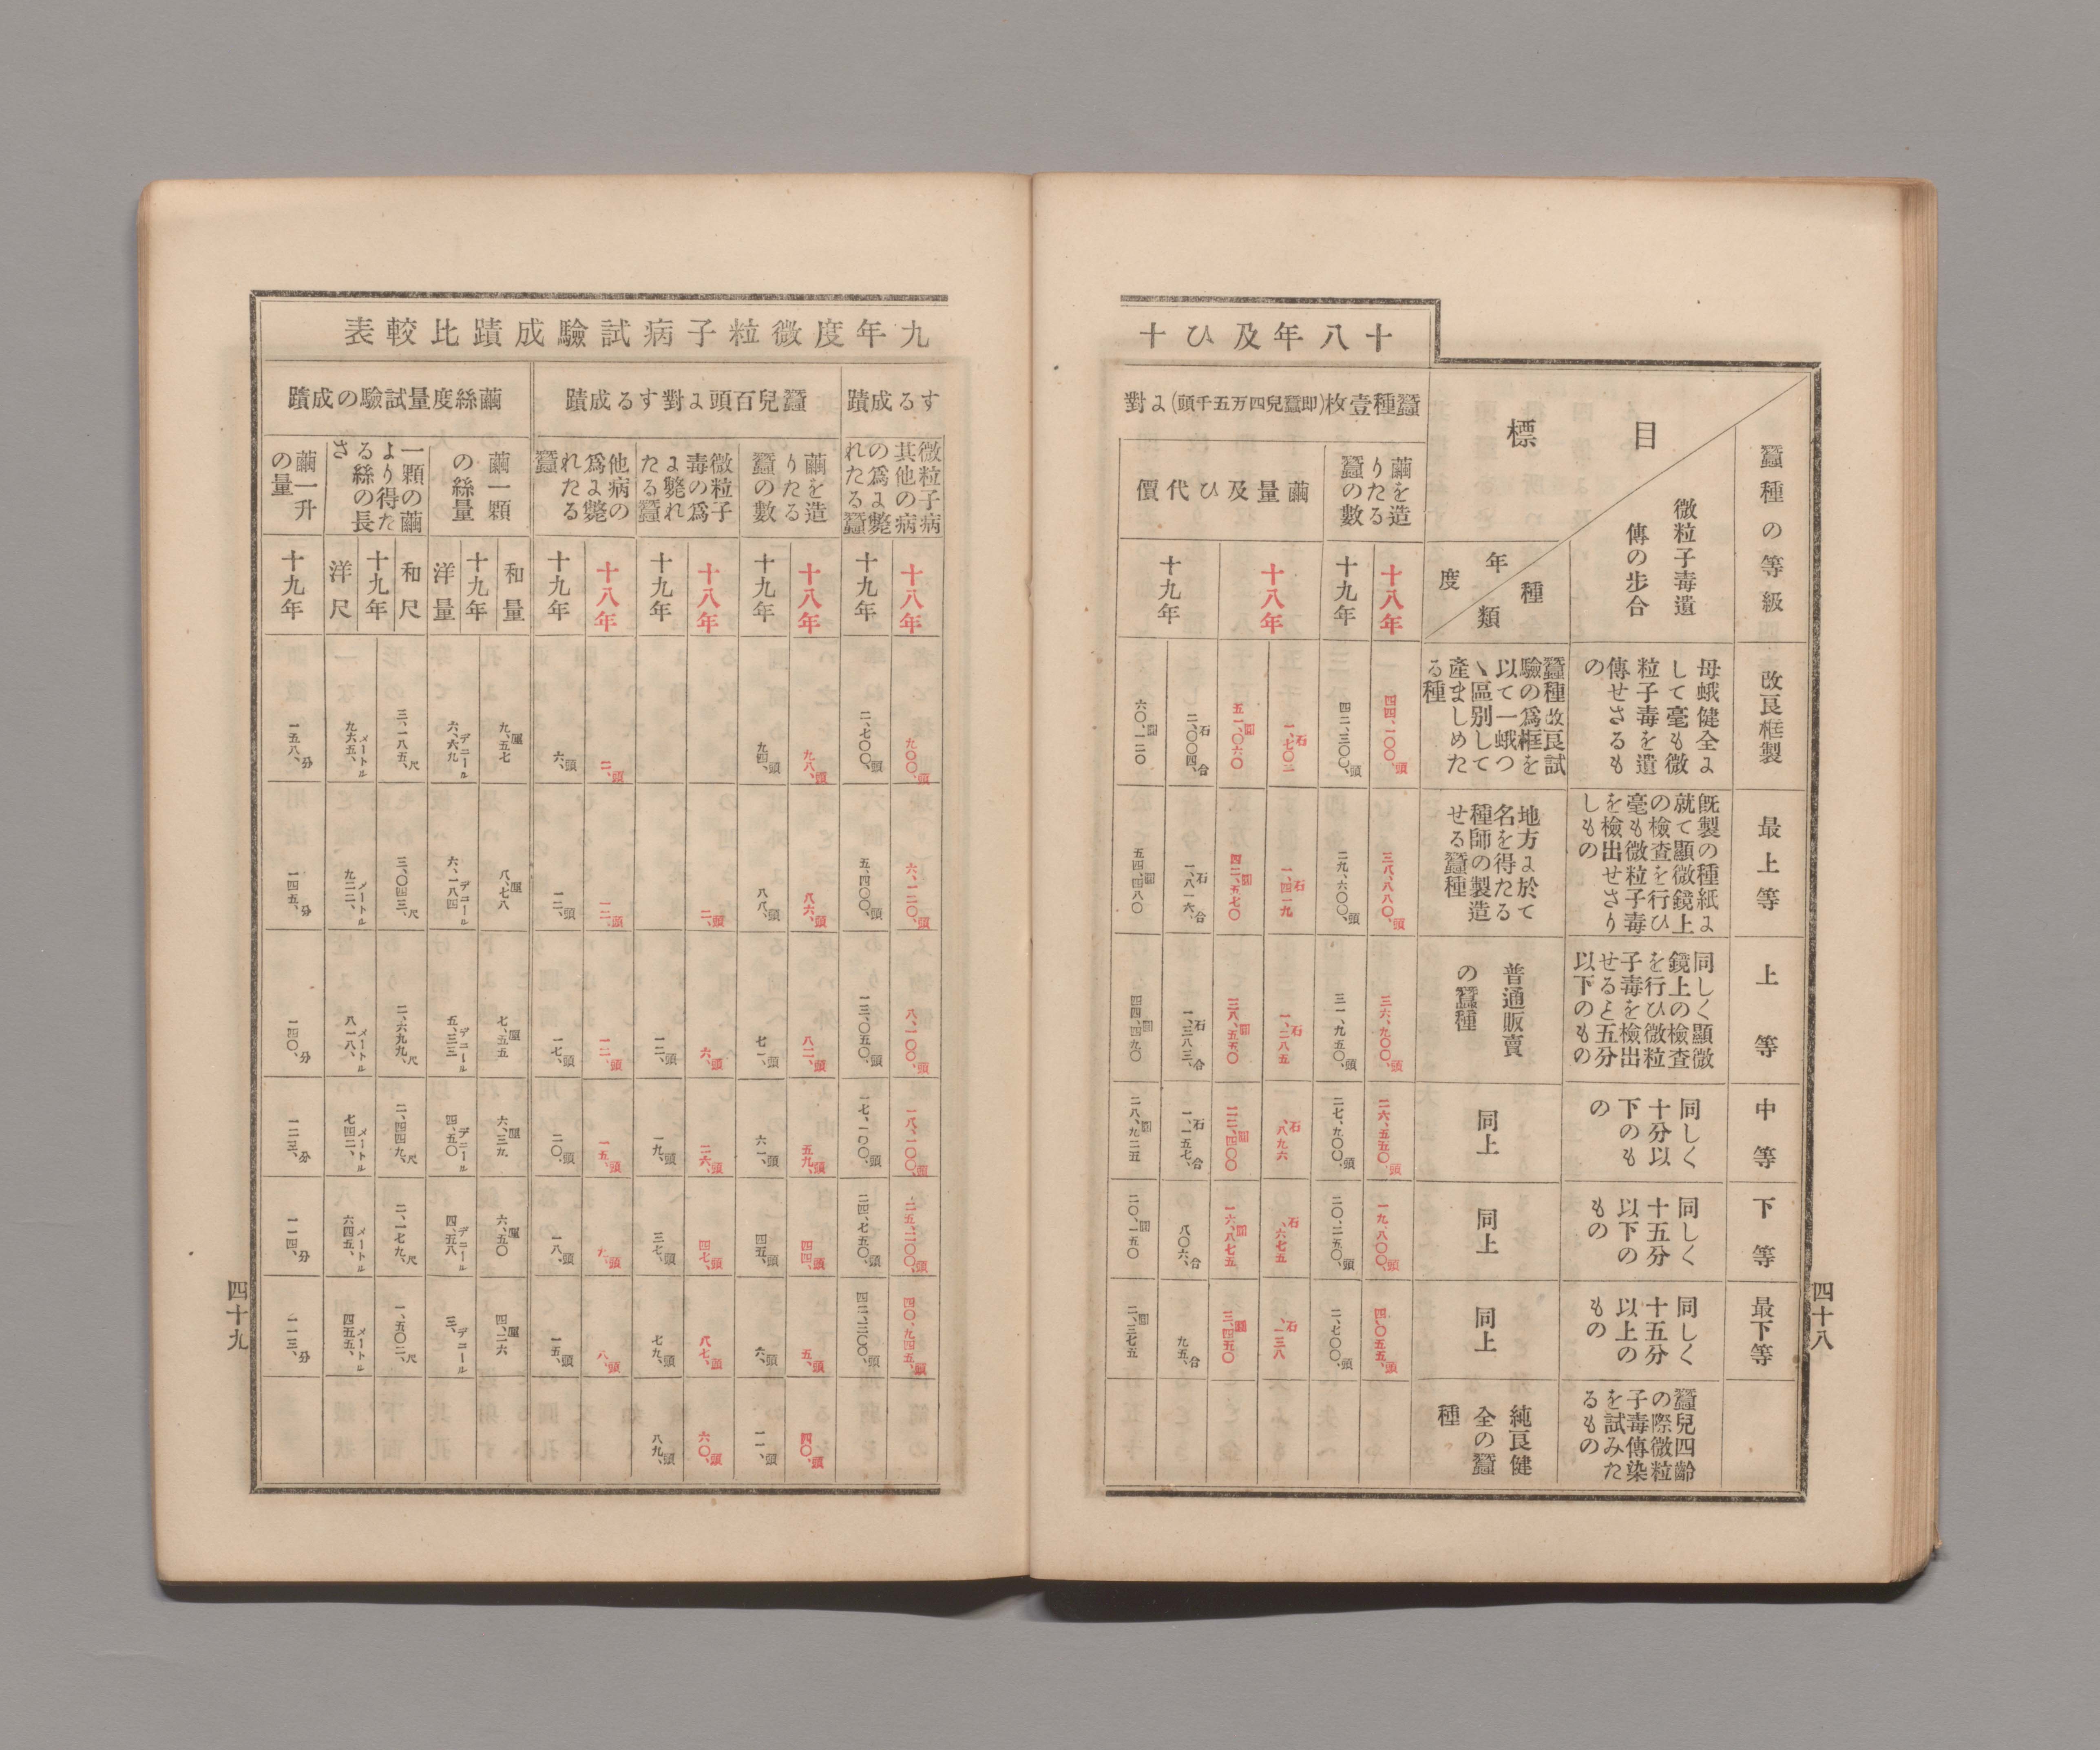 十八年及ひ十
目標
蠶種の等級
改良框製
最上等
上等
中等
下等
最下等
微粒子毒遺
傳の步合
母蛾健全ょ
して毫も微
粒子毒を遺
傳せさるも
の
旣製の種紙ょ
就て顯微鏡上
の檢査を行ひ
毫も微粒子毒
を檢出せさり
しもの
同しく顯微
鏡上の檢査
を行ひ微粒
子毒を檢出
せると五分
以下のもの
同しく
十分以
下のも
の
同しく
十五分
以下の
もの
同しく
十五分
以上の
もの
蠶兒四齡
の際微粒
子毒傳染
を試みた
るもの
種類
年度
蠶種改良試
驗の爲框を
以て一蛾つ
ヽ區別して
產ましめた
る種
地方ょ於て
名を得たる
種師の製造
せる蠶種
普通販賣
の蠶種
同上
同上
同上
純良健
全の蠶
種
蠶種壹枚(卽蠶兒四万五千頭)ょ對
繭を造
りたる
蠶の數
十八年
四四、一〇〇、頭
三八、八八〇、頭
三六、九〇〇、頭
二六、五五〇、頭
一九、八〇〇、頭
四、〇五五、頭
十九年
四二、三〇〇、頭
二九、六〇〇、頭
三一、九五〇、頭
二七、九〇〇、頭
二〇、二五〇、頭
二、七〇〇、頭
繭量及ひ代價
十八年
一、七〇二石
一、四一九石
一、二八五石
、八九六石
、六七五石
、一三八石
五一、〇六〇圓
四二、五七〇圓
三八、五五〇圓
二二、四〇〇圓
一六、八七五圓
三、四五〇圓
十九年
二、〇〇四、石合
一、八一六、石合
一、三八三、石合
一、一五七、石合
八〇六、合
九五、合
六〇、一二〇圓
五四、四八〇圓
四四、四九〇圓
二八、九二五圓
二〇、一五〇圓
二、三七五圓
四十八
九年度微粒子病試驗成蹟比較表
する成蹟
微粒子病
其他の病
の爲ょ斃
れたる蠶
十八年
九〇〇、頭
六、一二〇、頭
八、一〇〇、頭
一八、一〇〇、頭
二五、二〇〇、頭
四〇、九四五、頭
十九年
二、七〇〇、頭
五、四〇〇、頭
一三、〇五〇、頭
一七、一〇〇、頭
二四、七五〇、頭
四二、三〇〇、頭
蠶兒百頭ょ對する成蹟
繭を造
りたる
蠶の數
十八年
九八、頭
八六、頭
八二、頭
五九、頭
四四、頭
五、頭
四〇、頭
十九年
九四、頭
八八、頭
七一、頭
六一、頭
四五、頭
六、頭
一一、頭
微粒子
毒の爲
ょ斃れ
たる蠶
十八年
二、頭
六、頭
二六、頭
四七、頭
八七、頭
六〇、頭
十九年
一二、頭
一九、頭
三七、頭
七九、頭
八九、頭
他病の
爲ょ斃
れたる
蠶
十八年
二、頭
一二、頭
一二、頭
一五、頭
九、頭
八、頭
十九年
六、頭
一二、頭
一七、頭
二〇、頭
一八、頭
一五、頭
繭絲度量試驗の成蹟
繭一顆
の絲量
十九年
和量
九、五七厘
八、七八厘
七、五五厘
六、三九厘
六、五〇厘
四、二六厘
洋量
六、六九デニール
六、一八四デニール
五、三三デニール
四、五〇デニール
四、五八デニール
三、デニール
一顆の繭
より得た
る絲の長
さ
十九年
和尺
三、一八五、尺
三、〇四三、尺
二、六九九、尺
二、四四九、尺
二、一七九、尺
一、五〇二、尺
洋尺
九六五、メートル
九二二、メートル
八一八、メートル
七四二、メートル
六四五、メートル
四五五、メートル
繭一升
の量
十九年
一五八、分
一四五、分
一四〇、分
一二三、分
一一四、分
一一三、分
四十九